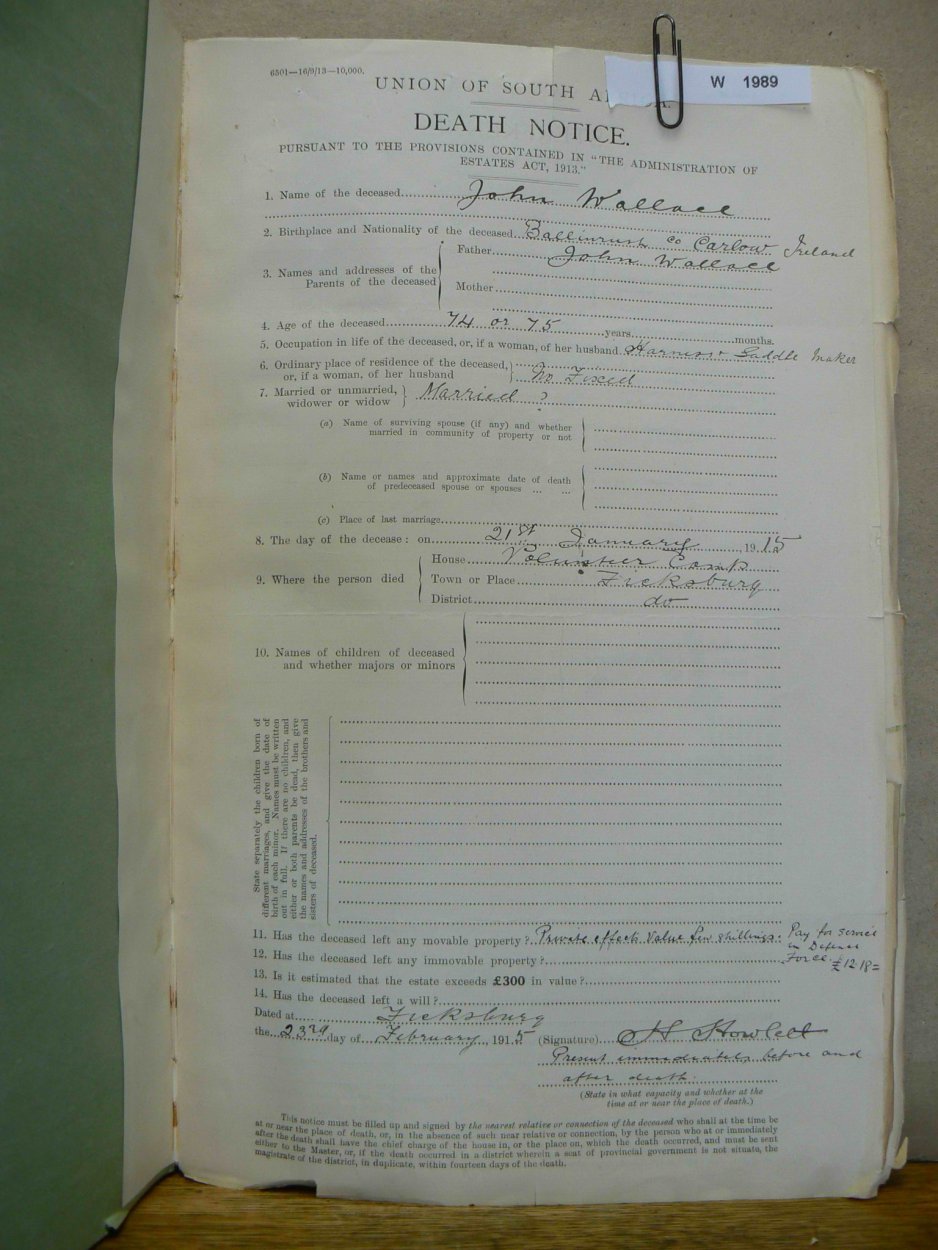 6501—16/9/13—10,000.
W 1989
UNION OF SOUTH A A.
DEATH NOTICE.
PURSUANT TO THE PROVISIONS CONTAINED IN "THE ADMINISTRATION OF
ESTATES ACT, 1913."
1. Name of the deceased John Wallace
2. Birthplace and Nationality of the deceased Ballinrush Co Carlow Ireland
3. Names and addresses of the Parents of the deceased
Father John Wallace
Mother
4. Age of the deceased 74 or 75 years months.
5. Occupation in life of the deceased, or, if a woman, of her husband Harness & Saddle Maker
6. Ordinary place of residence of the deceased,
or, if a woman, of her husband No Fixed
7. Married or unmarried,
widower or widow Married ?
(a) Name of surviving spouse (if any) and whether
married in community of property or not
(b) Name or names and approximate date of death
of predeceased spouse or spouses ... ...
(c) Place of last marriage
8. The day of the decease: on 21st January 1915
9. Where the person died
House Volunteer Camp
Town or Place Ficksburg
District do
10. Names of children of deceased
and whether majors or minors
State separately the children born of
different marriages, and give the date of
birth of each minor. Names must be written
out in full. If there are no children, and
either or both parents be dead, then give
the names and addresses of the brothers and
sisters of deceased.
11. Has the deceased left any movable property? Private effects Value few shillings. Pay for service
in Defense
Force. £12.18=
12. Has the deceased left any immovable property?
13. Is it estimated that the estate exceeds £300 in value?
14. Has the deceased left a will?
Dated at Ficksburg
the 23rd day of February, 1915 (Signature) H Howlett
Present immediately before and
after death.
(State in what capacity and whether at the
time at or near the place of death.)
This notice must be filled up and signed by the nearest relative or connection of the deceased who shall at the time be
at or near the place of death, or, in the absence of such near relative or connection, by the person who at or immediately
after the death shall have the chief charge of the house in, or the place on, which the death occurred, and must be sent
either to the Master, or, if the death occurred in a district wherein a seat of provincial government is not situate, the
magistrate of the district, in duplicate, within fourteen days of the death.